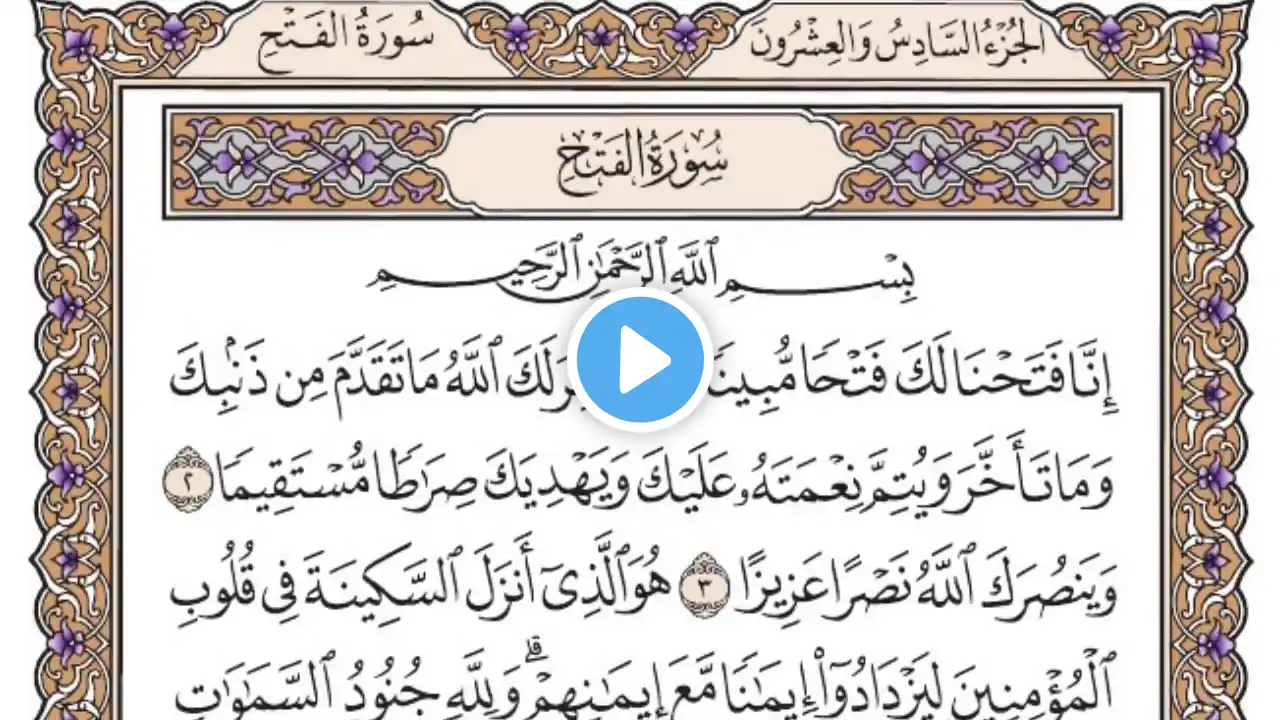 الجُزْءُ السَّادِسُ وَالعِشْرُونَ
سُورَةُ الفَتْحِ
سُورَةُ الفَتْحِ
بِسْمِ ٱللَّهِ ٱلرَّحْمَٰنِ ٱلرَّحِيمِ
إِنَّا فَتَحْنَا لَكَ فَتْحًا مُّبِينًا لَكَ ٱللَّهُ مَا تَقَدَّمَ مِن ذَنۢبِكَ
وَمَا تَأَخَّرَ وَيُتِمَّ نِعْمَتَهُۥ عَلَيْكَ وَيَهْدِيَكَ صِرَٰطًا مُّسْتَقِيمًا ٢
وَيَنصُرَكَ ٱللَّهُ نَصْرًا عَزِيزًا ٣ هُوَ ٱلَّذِىٓ أَنزَلَ ٱلسَّكِينَةَ فِى قُلُوبِ
ٱلْمُؤْمِنِينَ لِيَزْدَادُوٓا۟ إِيمَٰنًا مَّعَ إِيمَٰنِهِمْ ۗ وَلِلَّهِ جُنُودُ ٱلسَّمَٰوَٰتِ